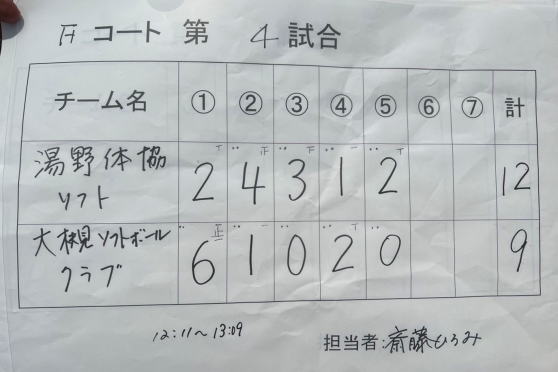 コート 第 4 試合
チーム名 ① ② ③ ④ ⑤ ⑥ ⑦ 計
湯野体協
ソフト 2 4 3 1 2 12
大槻ソフトボール
クラブ 6 1 0 2 0 9
12:11～13:09
担当者:斎藤ひろみ